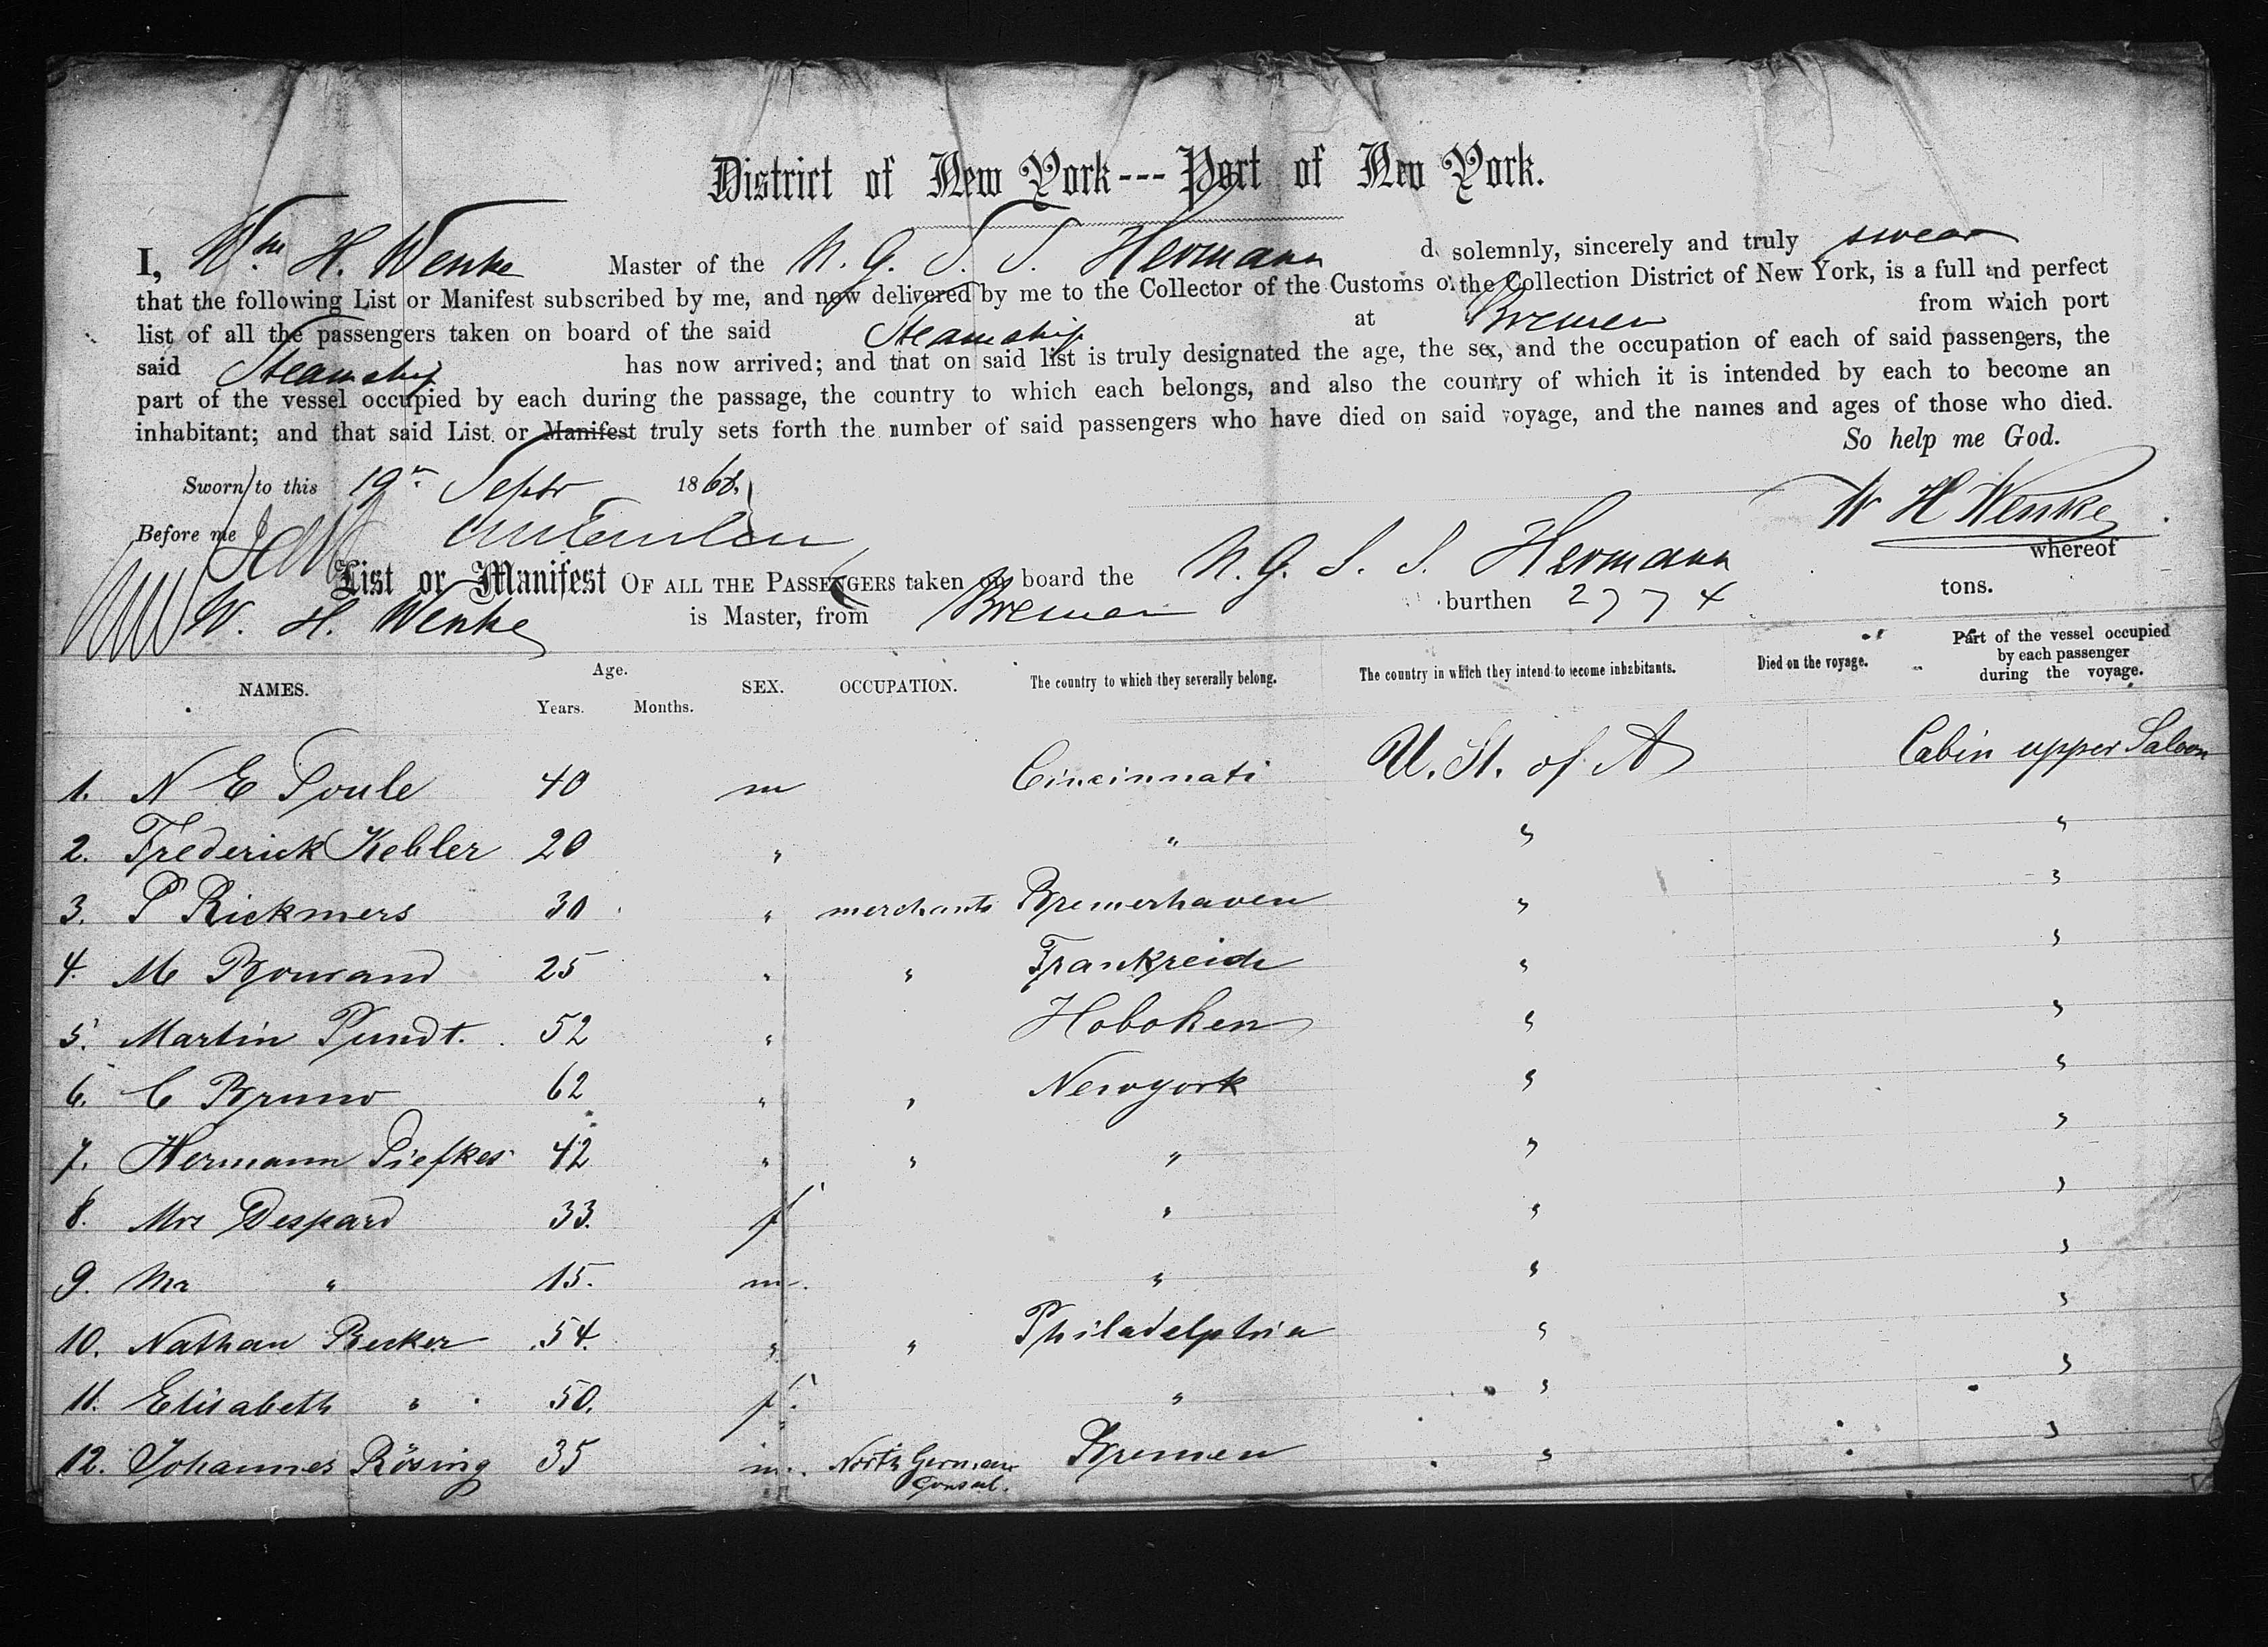 District of New York --- Port of New York.
I, Wm H. Wenke Master of the N. G. S. S. Hermann do solemnly, sincerely and truly swear
that the following List or Manifest subscribed by me, and now delivered by me to the Collector of the Customs of the Collection District of New York, is a full and perfect
list of all the passengers taken on board of the said Steamship at Bremen from which port
said Steamship has now arrived; and that on said list is truly designated the age, the sex, and the occupation of each of said passengers, the
part of the vessel occupied by each during the passage, the country to which each belongs, and also the country of which it is intended by each to become an
inhabitant; and that said List or Manifest truly sets forth the number of said passengers who have died on said voyage, and the names and ages of those who died.
So help me God.
Sworn to this 19th Septbr 1868.
W H Wenke
Before me
List or Manifest OF ALL THE PASSENGERS taken on board the N. G. S. S. Hermann whereof
W. H. Wenke is Master, from Bremen burthen 2774 tons.
NAMES. Age. Years. Months. SEX. OCCUPATION. The country to which they severally belong. The country in which they intend to become inhabitants. Died on the voyage. Part of the vessel occupied by each passenger during the voyage.
1. N E 40 m Cincinnati U. St. of A Cabin upper Saloon
2. Frederick Kebler 20 " " " "
3. P Rickmers 30 " merchants Bremerhaven " "
4. M 25 " " Frankreich " "
5. Martin Pundt. 52 " Hoboken " "
6. C Bruno 62 " " Newyork " "
7. Hermann Piefkes 42 " " " " "
8. Mrs Despard 33. f " " "
9. Mr " 15. m. " " "
10. Nathan Becker 54. " " Philadelphia " "
11. Elisabeth " 50. f. " " "
12. Johannes Rösing 35 m. North German Consul. Bremen " "